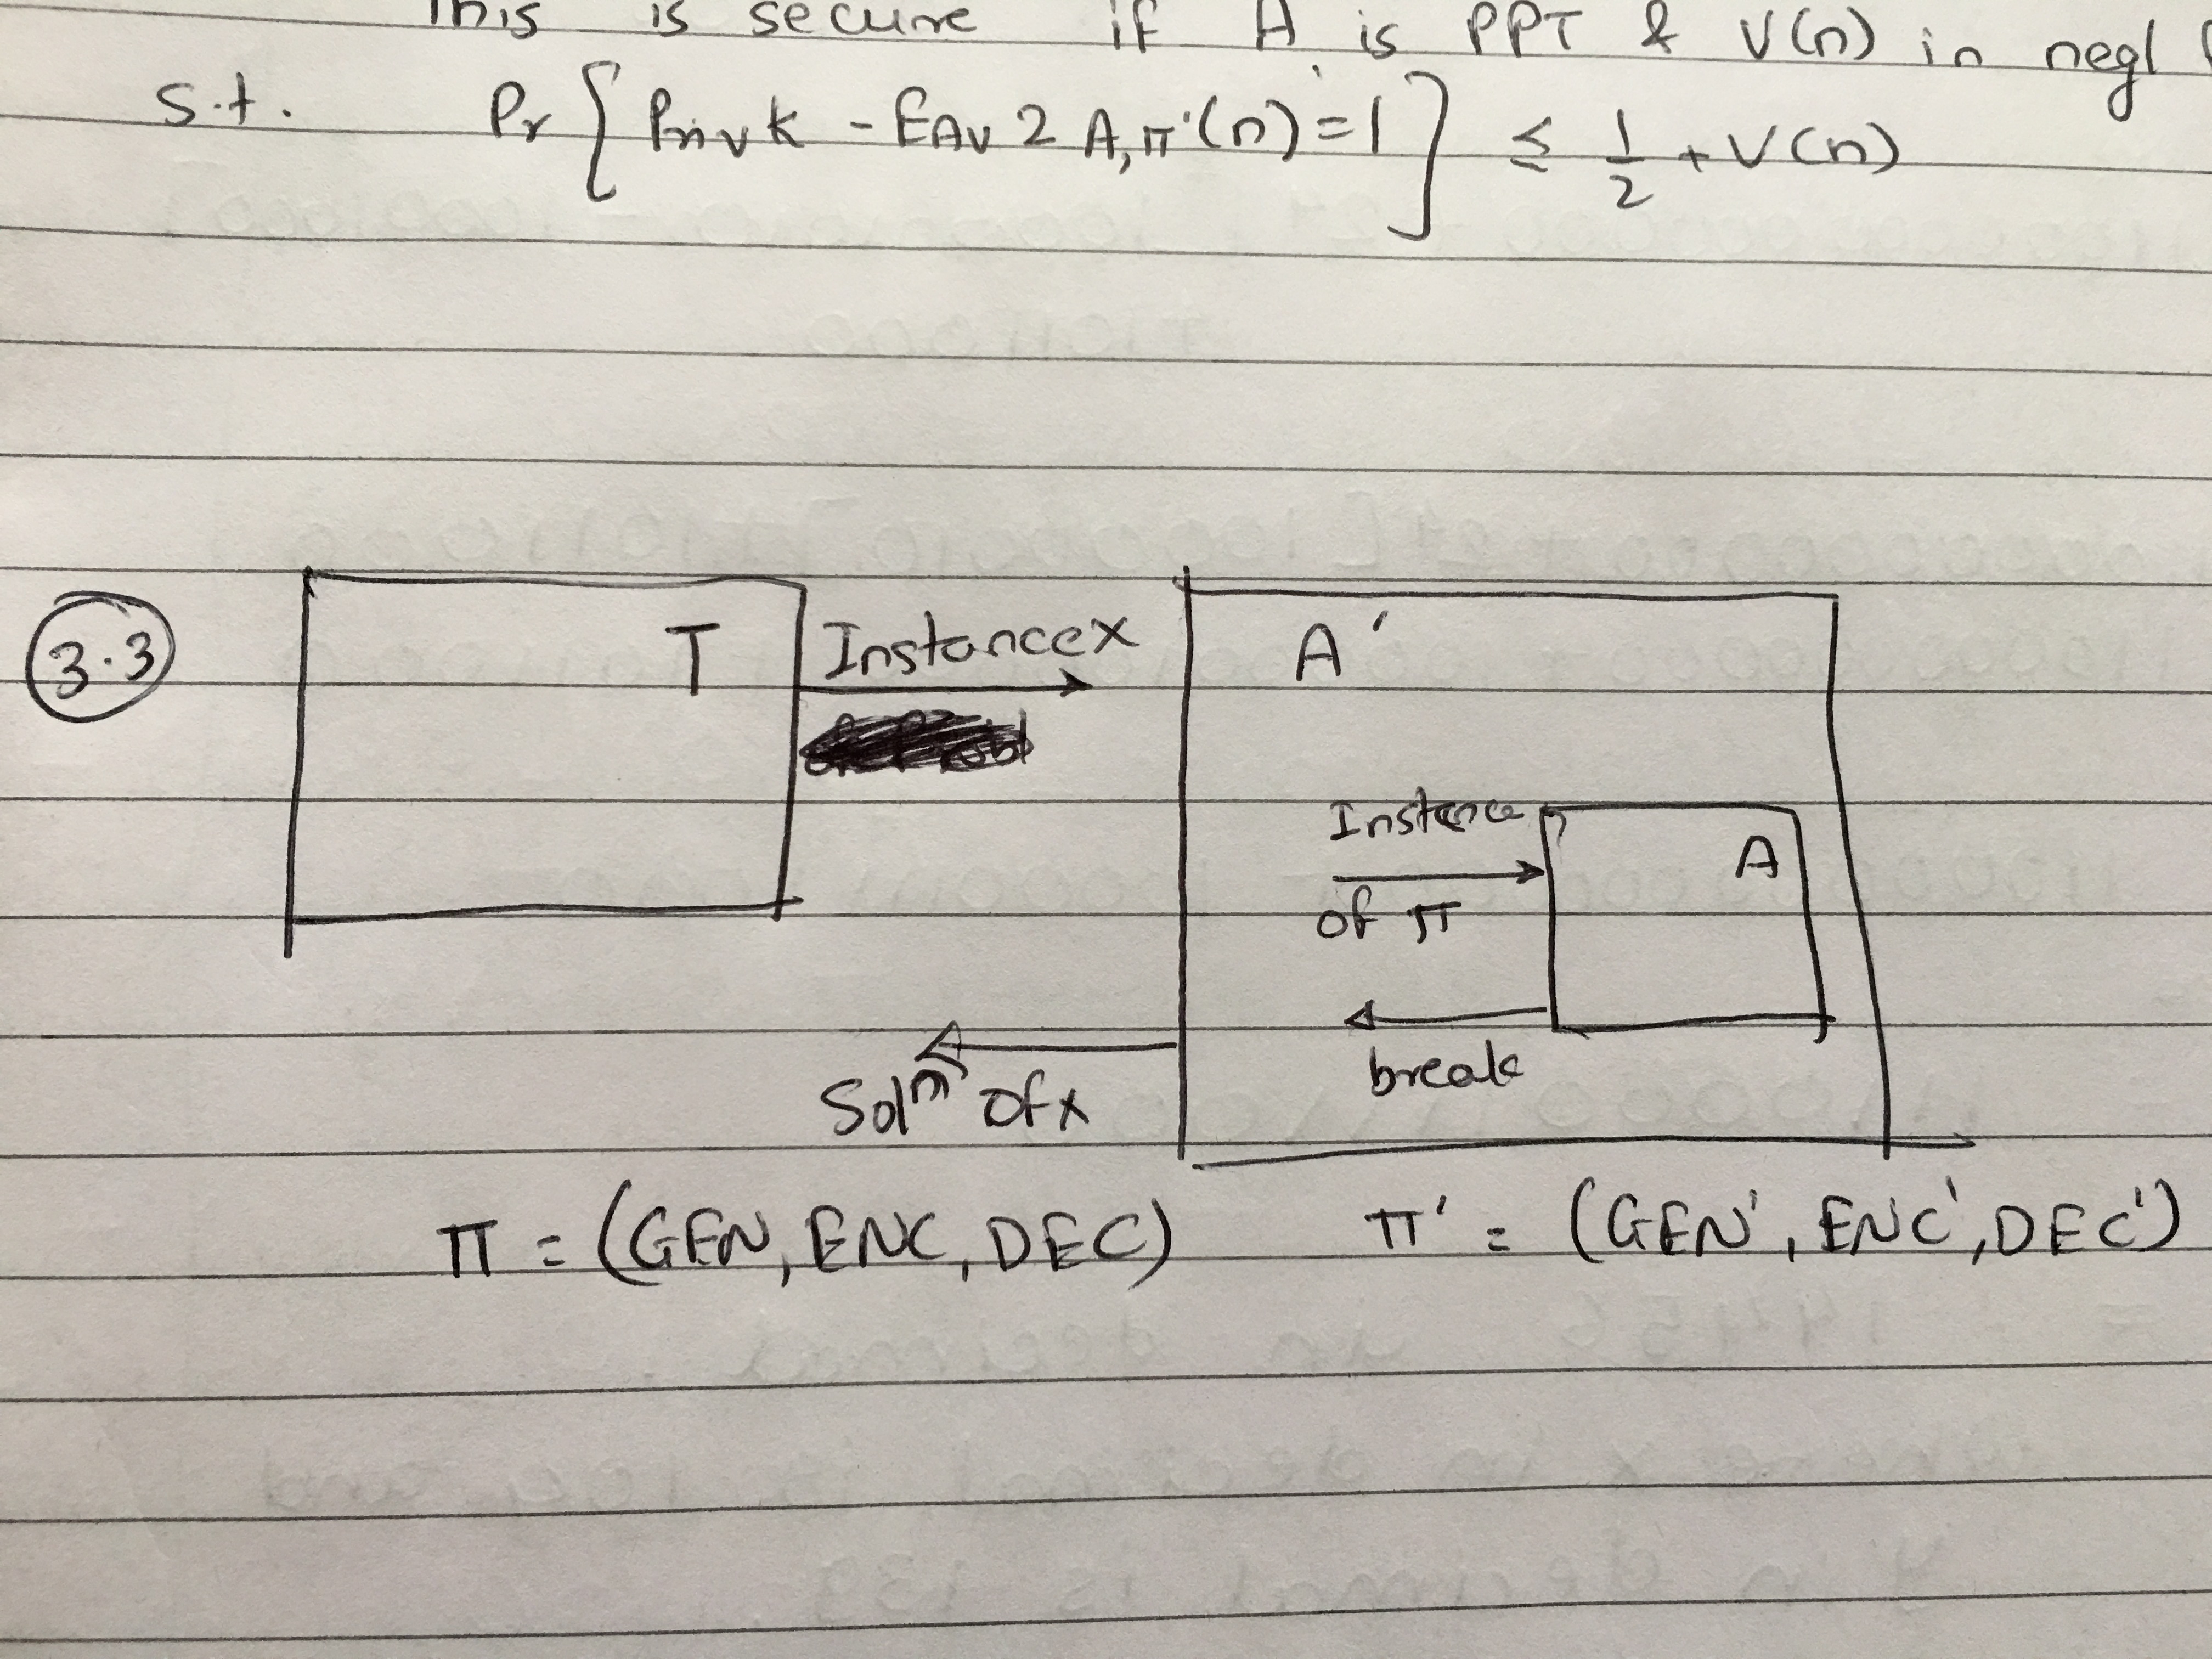 This is secure if A is PPT & V(n) in negl
s.t. Pr { Privk - EAV 2 A, π' (n) = 1 } ≤ 1/2 + V(n)
3.3
T
Instance x
A'
Instance
of π
A
break
Soln of x
Π = (GEN, ENC, DEC) Π' = (GEN', ENC', DEC')